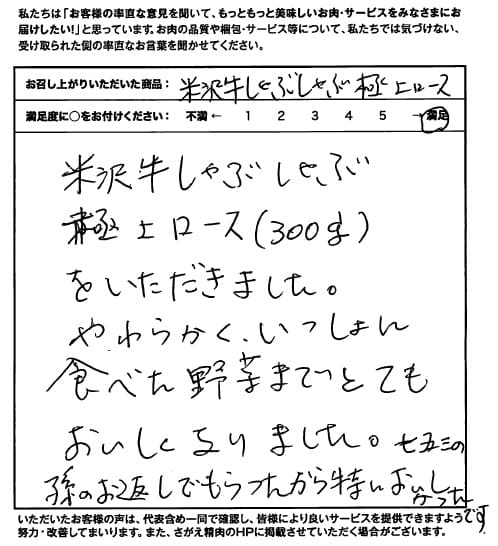 私たちは「お客様の率直な意見を聞いて、もっともっと美味しいお肉・サービスをみなさまにお
届けしたい!」と思っています。お肉の品質や梱包・サービス等について、私たちでは気づけない、
受け取られた側の率直なお言葉を聞かせてください。
お召し上がりいただいた商品: 米沢牛しゃぶしゃぶ極上ロース
満足度に○をお付けください: 不満 ← 1 2 3 4 5 → 満足
米沢牛しゃぶしゃぶ
極上ロース(300g)
をいただきました。
やわらかく、いっしょに
食べた野菜までとても
おいしくなりました。七五三の
孫のお返しでもらったから特においしかった
です
いただいたお客様の声は、代表含め一同で確認し、皆様により良いサービスを提供できますよう
努力・改善してまいります。また、さがえ精肉のHPに掲載させていただく場合がございます。